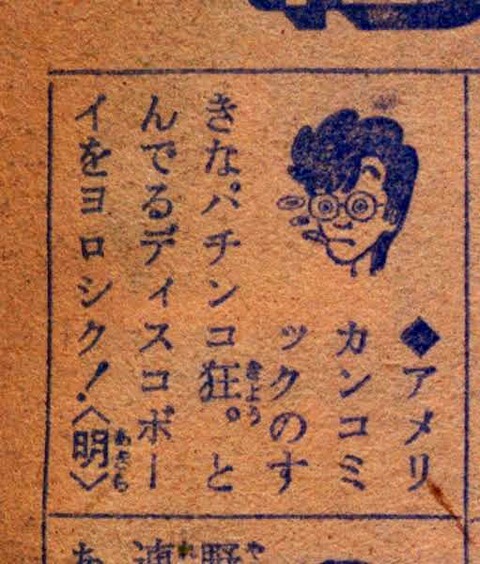 ◆アメリ
カンコミ
ックのす
きなパチンコ狂。と
んでるディスコボー
イをヨロシク!〈明〉